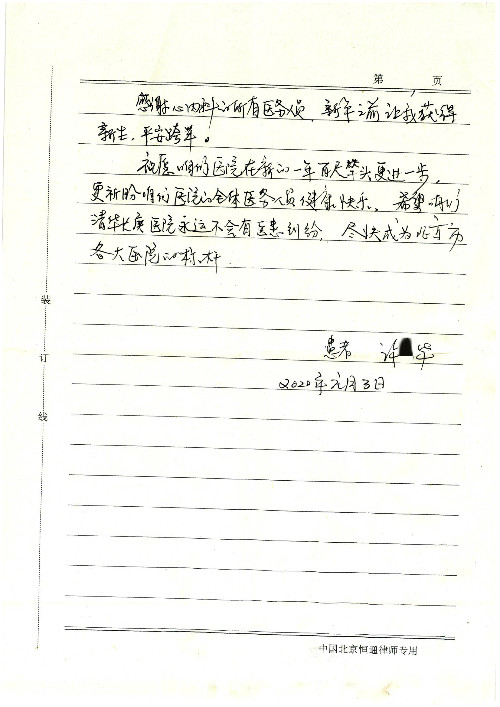 第 页
感谢心内科的所有医务人员，新年之前让我获得
新生，平安跨年！
祝愿咱们医院在新的一年百尺竿头更进一步，
更祈盼咱们医院的全体医务人员健康快乐。希望咱们
清华长庚医院永远不会有医患纠纷，尽快成为北京市
各大医院的标杆.
患者 许 华
2020年元月3日
装
订
线
中国北京恒通律师专用